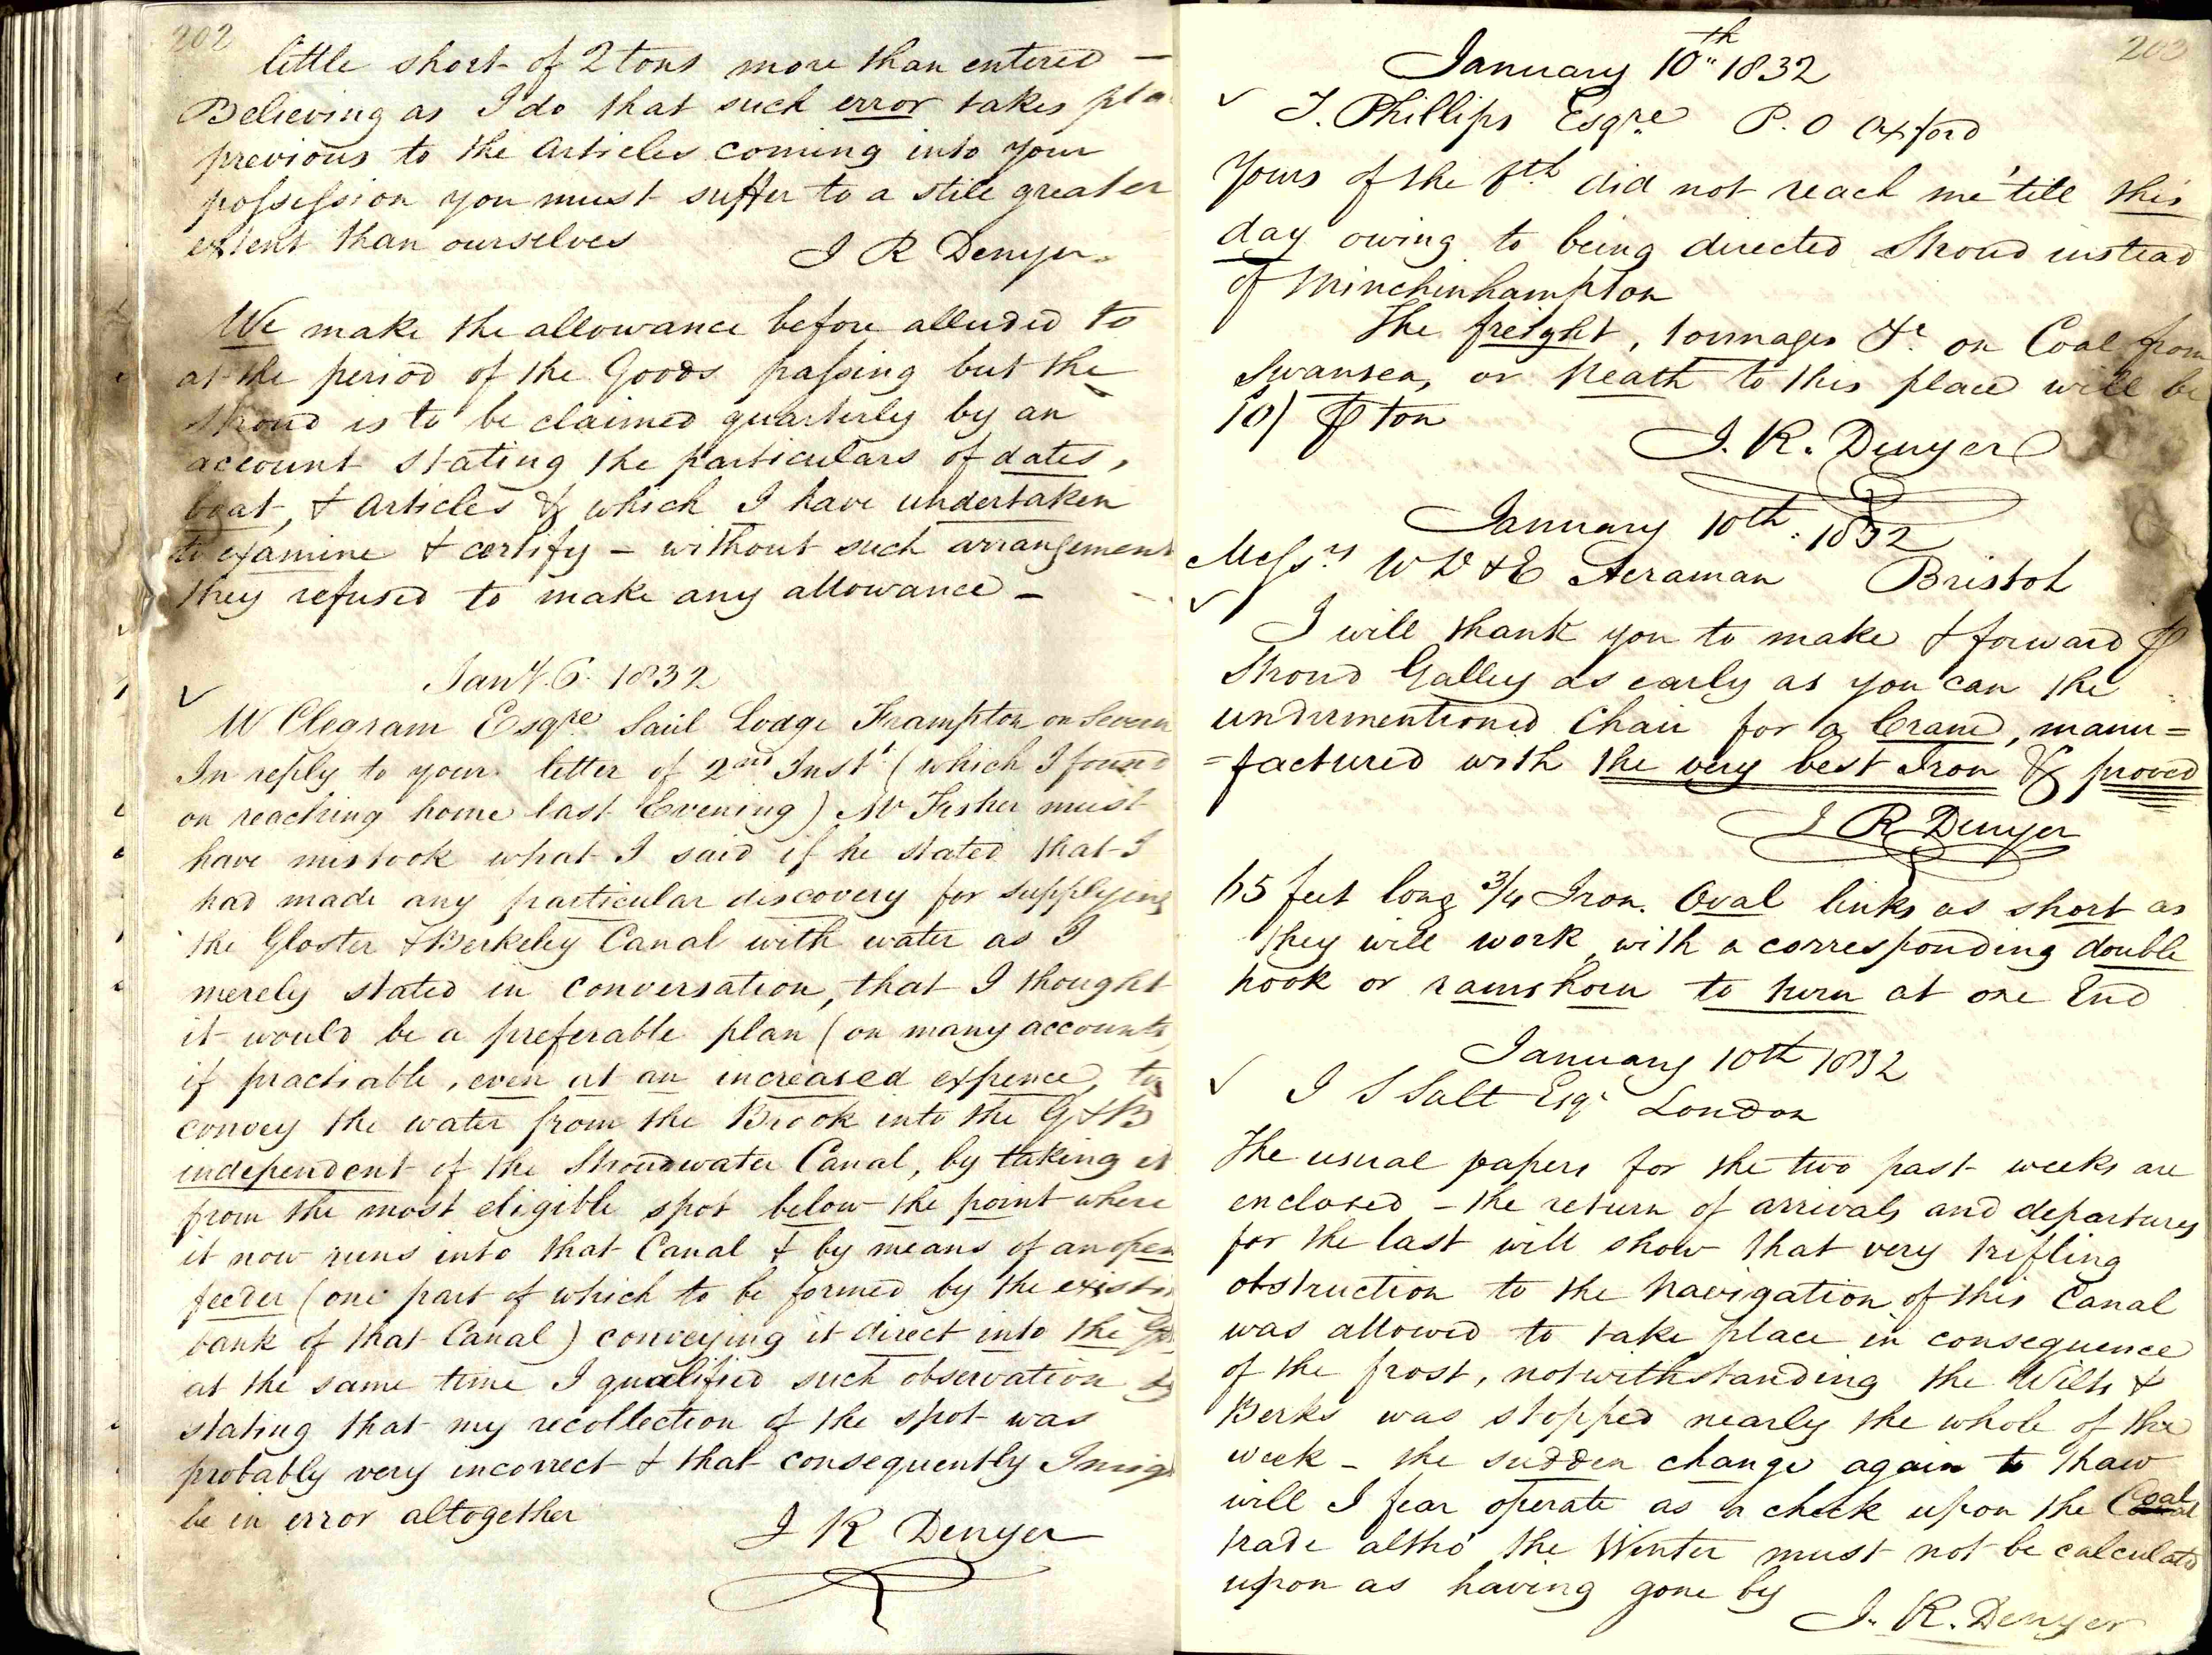 202
little short of 2 tons more than entered —
Believing as I do that such error takes pla
previous to the Articles coming into your
possession you must suffer to a still greater
extent than ourselves
J R Denyer
We make the allowance before alluded to
at the period of the Goods passing but the
Stroud is to be claimed quarterly by an
account stating the particulars of dates,
boat, & articles & which I have undertaken
to examine & certify – without such arrangement
they refused to make any allowance –
Jany. 6. 1832
W Clegram Esqre Saul Lodge Frampton on Severn
In reply to your letter of 2nd Inst. (which I found
on reaching home last Evening) Mr Fisher must
have mistook what I said if he stated that I
had made any particular discovery for supplying
the Gloster & Berkeley Canal with water as I
merely stated in conversation, that I thought
it would be a preferable plan (on many accounts
if practiable, even at an increased expence, to
convey the water from the Brook into the G&B
independent of the Stroudwater Canal, by taking it
from the most eligible spot below the point where
it now runs into that Canal & by means of an open
feeder (one part of which to be formed by the existin
bank of that Canal) conveying it direct into the
at the same time I qualified such observation by
stating that my recollection of the spot was
probably very incorrect & that consequently I mig
be in error altogether
J R Denyer
203
January 10th 1832
J. Phillips Esqre P.O Oxford
Yours of the 8th did not reach me 'till this
day owing to being directed Stroud instead
of Minchinhampton
The freight, tonnages &c on Coal from
Swansea, or Neath to this place will be
10/ ⅌ ton
J. R. Denyer
January 10th. 1832
Messrs W D & E Acraman Bristol
I will thank you to make & forward ⅌
Stroud Galley as early as you can the
undermentioned Chain for a Crane, manu=
=factured with the very best Iron & proved
J R Denyer
65 feet long 3/4 Iron. Oval links as short as
they will work with a corresponding double
hook or ramshorn to turn at one End
January 10th 1832
J S Salt Esqr London
The usual papers for the two past weeks are
enclosed – the return of arrivals and departures
for the last will show that very trifling
obstruction to the Navigation of this Canal
was allowed to take place in consequence
of the frost, notwithstanding the Wilts &
Berks was stopped nearly the whole of the
week – the sudden change again to thaw
will I fear operate as a check upon the Coal
trade altho' the Winter must not be calculated
upon as having gone by
J. R. Denyer